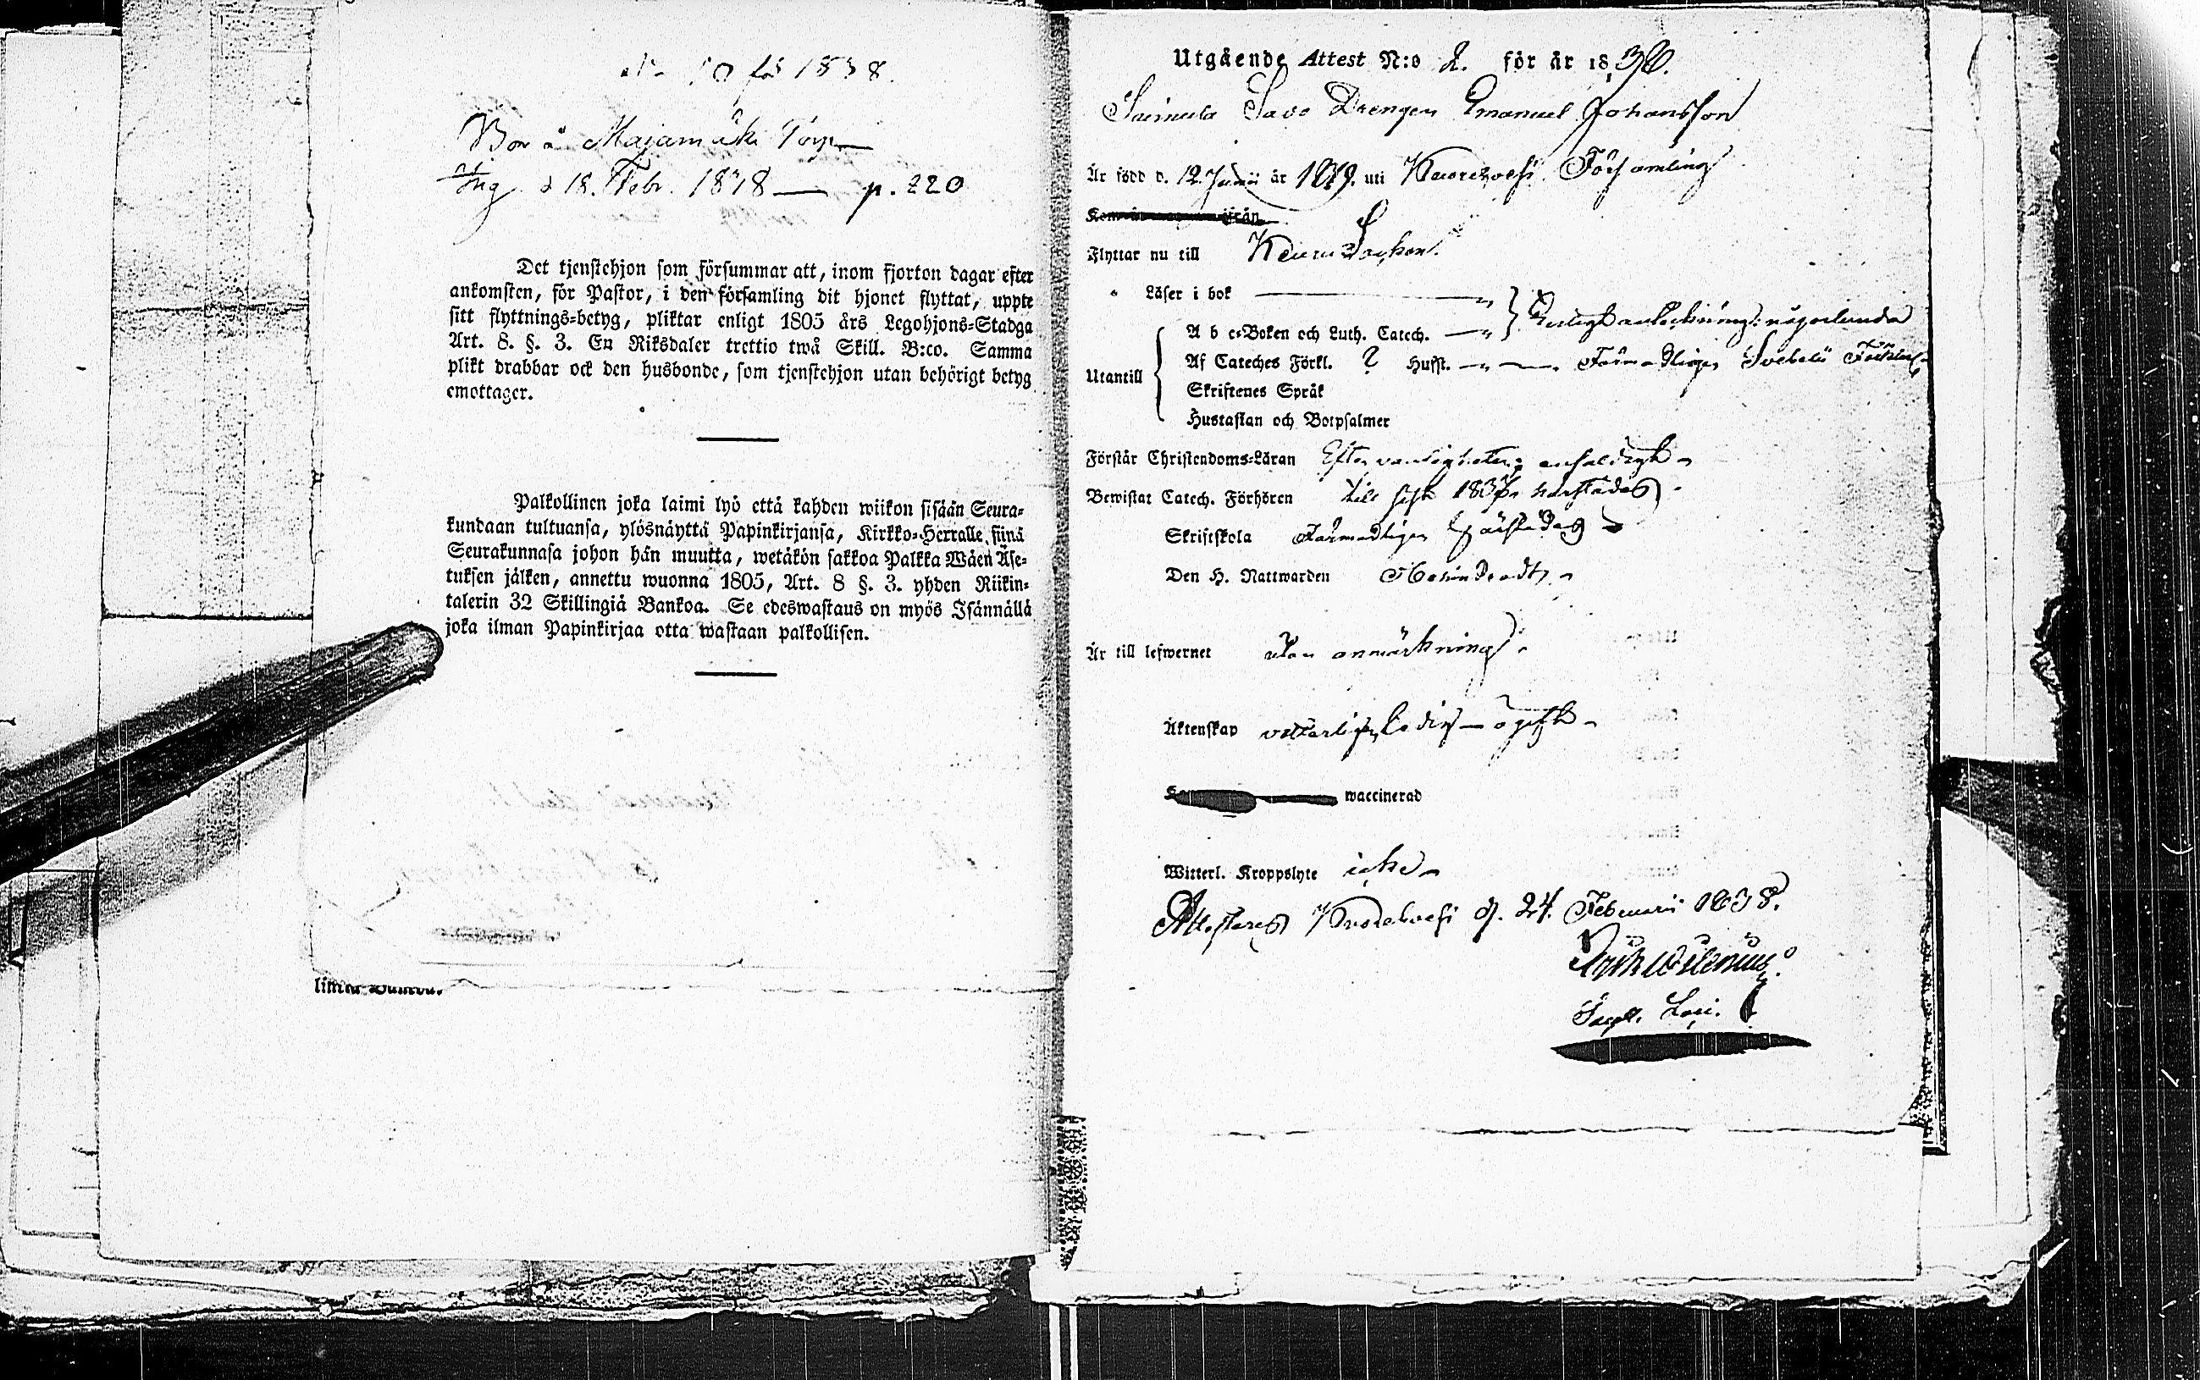 för 1838.
Bor å Majamäki Torp
Ing. d 18. Febr. 1838 — p. 220
Det tjenstehjon som försummar att, inom fjorton dagar efter
ankomsten, för Pastor, i den församling dit hjonet flyttat, uppte
sitt flyttnings=betyg, pliktar enligt 1805 års Legohjons=Stadga
Art. 8. §. 3. En Riksdaler trettio twå Skill. B:co. Samma
plikt drabbar ock den husbonde, som tjenstehjon utan behörigt betyg
emottager.
Palkollinen joka laimi lyö että kahden wiikon sisään Seura=
kundaan tultuansa, ylösnäyttä Papinkirjansa, Kirkko=Herralle siinä
Seurakunnasa johon hän muutta, wetäkön sakkoa Palkka Wäen Äse=
tuksen jälken, annettu wuonna 1805, Art. 8 §. 3. yhden Riikin=
talerin 32 Skillingiä Bankoa. Se edeswastaus on myös Isännällä
joka ilman Papinkirjaa otta wastaan palkollisen.
Utgående Attest N:o 2. för år 1838.
Savo Drengen Emanuel Johansson
Är född d. 12 Junii år 1819. uti Kuorevesi Församling
Flyttar nu till Keuru Socken.
Läser i bok
A b c=Boken och Luth. Catech. Enligt anteckning: någorlunda
Utantill
Af Cateches Förkl. ? Hufst. Svebelii Förklar.
Skriftenes Språk
Hustaflan och Botpsalmer
Förstår Christendoms=Läran Efter vanligheten enfaldigt
Bewistat Catech. Förhören till 1837 härstädes
Skriftskola härstädes
Den H. Nattwarden
Är till lefwernet utan anmärkning
Äktenskap veterligen ledig — ogift
waccinerad
Witterl. Kroppslyte icke
Attesteras Kuorevesi d. 24. Februarii 1838.